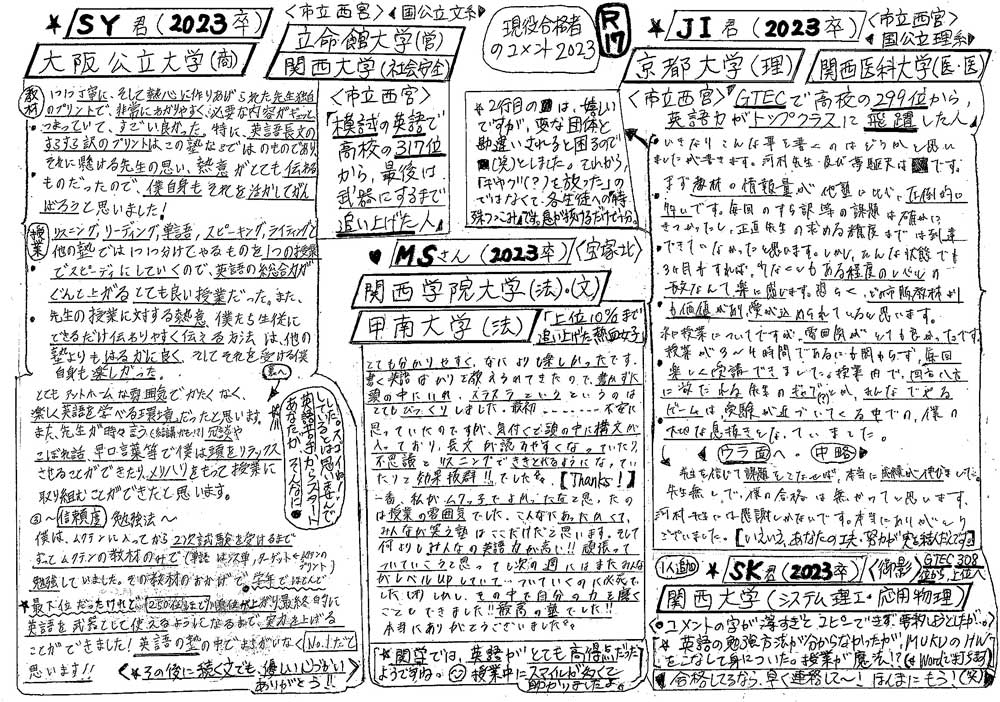 ★SY君(2023卒)
〈市立西宮〉◆国公立文系◆
大阪公立大学(商)
立命館大学(営)
関西大学(社会安全)
現役合格者
のコメント2023
R17
教材
1つ1つ丁寧に、そして熱心に作りあげられた先生独自
のプリントで、非常にわかりやすく、必要な内容がギュッと
つまっていて、すごい良かった。特に、英語長文の
するする訳のプリントはこの塾ならではのものであり、
それに懸ける先生の思い、熱意がとても伝わる
ものだったので、僕自身もそれを活かしてがん
ばろうと思いました!
〈市立西宮〉
「模試の英語で
高校の317位
から、最後は
武器にするまで
追い上げた人」
授業
リスニング、リーディング、単語、スピーキング、ライティングと
他の塾では1つ1つ分けてやるものを1つの授業
でスピーディにしていくので、英語の総合力が
ぐんと上がるとても良い授業だった。また、
先生の授業に対する熱意、僕たち生徒に
できるだけ伝わりやすく伝える方法は、他の
塾よりもはるかに良く、そしてそれを受ける僕
自身も楽しかった。
とてもアットホームな雰囲気でかたくなく、
楽しく英語を学べる環境だったと思います。
また、先生が時々言う
こぼれ話、早口言葉等で僕は頭をリラックス
させることができたり、メリハリをもって授業に
取り組むことができたと思います。
③〜信頼度 勉強法〜
僕は、ムクテンに入ってから2次試験を受けるまで
ずっとムクテンの教材のみで
勉強していました。その教材のおかげで、学年でほとんど
★最下位だったけれど、250位まで順位が上がり、最終的に
英語を武器として使えるようになるまで、実力を上げる
ことができました!英語の塾の中でまちがいなくNo.1だと
思います!!
〈★その後に続く文でも、優しい心づかい
ありがとう!!〉
★2行目の
は、嬉しい
ですが、変な団体と
勘違いされると困るので
(笑)としました。それから、
「ギャグ(?)を放った」の
ではなくて、各生徒への特
♥MSさん(2023卒)〈宝塚北〉
関西学院大学(法)・(文)
甲南大学(法)
「上位10%まで
追い上げた熱血女子」
とても分かりやすく、なにより楽しかったです。
書く英語ばかりを教えられてきたので、書かずに
頭の中にいれ、スラスラというというのは
とてもびっくりしました。最初……不安に
思っていたのですが、気付くと頭の中に構文が
入っており、長文が読みやすくなっていたり、
不思議とリスニングでききとれるようになってい
たりと効果抜群!!でした。【Thanks!】
一番、私がムクッ子でよかったなと思ったの
は授業の雰囲気でした。こんなにあったかくて、
みんなが笑う塾はここだけだと思います。そして
何よりもみんなの英語力が高い!!頑張って
ついていこうと思っても次の週にはまたみんな
がレベルupしていて…ついていくのに必死で
した(泣)しかし、その中で自分の力を磨く
こともできました!!最高の塾でした!!
本当にありがとうございました。
【★関学では、英語がとても高得点だった
ようですね。授業中にスマイルが多くて
助かりましたよ。】
★JI君(2023卒)
〈市立西宮〉
◆国公立理系◆
京都大学(理)
関西医科大学(医・医)
〈市立西宮〉「GTECで高校の299位から、
英語力がトップクラスに飛躍した人」
いきなりこんな事を書くのはどうかと思い
まず教材の情報量が他塾に比べ、圧倒的に
多いです。毎回のする訳等の課題は確かに
きつかったし、正直先生の求める精度までは到達
できていなかったと思います。しかし、そんな状態でも
授業が3〜4時間であるにも関わらず、毎回
楽しく受講できました。授業内で、四方八方
ゲームは、受験が近づいてくる中での、僕の
大切な息抜きとなっていました。
◀ウラ面へ・中略▶
先生を信じて課題をこなせば、本当に成績が伸びました。
先生無しで、僕の合格は無かったと思います。
河村先生には感謝しかないです。本当にありがとう
ございました。【いえいえ、あなたの工夫、努力が実を結んだんですよ】
1人追加
★SK君(2023卒)〈御影〉
GTEC308
位から上位へ
関西大学(システム理工・応用物理)
★英語の勉強方法が分からなかったが、MUKUのHW
をこなして身についた。授業が魔法!?(★Wordで打ちます)
合格してるなら、早く連絡して〜!ほんまにもう!(笑)